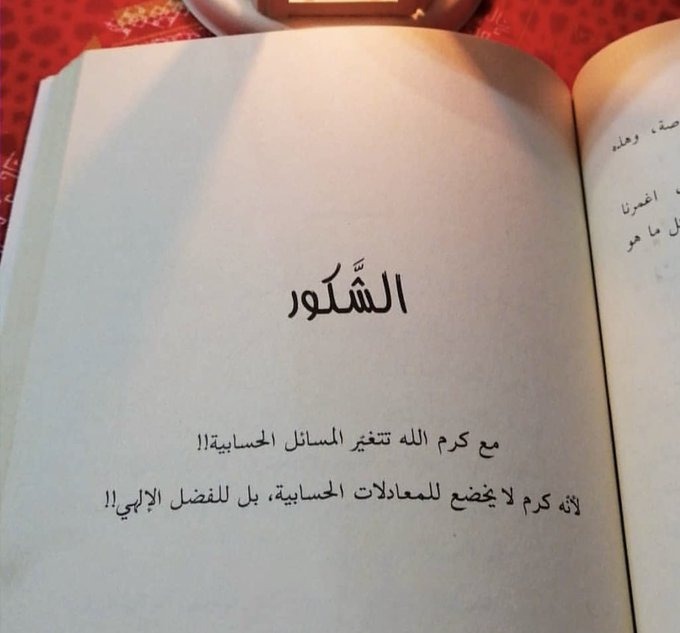 الشَّكور
مع كرم الله تتغيّر المسائل الحسابية!!
لأنه كرم لا يخضع للمعادلات الحسابية، بل للفضل الإلهي!!
صة، وهذه
اغمرنا
ل ما هو